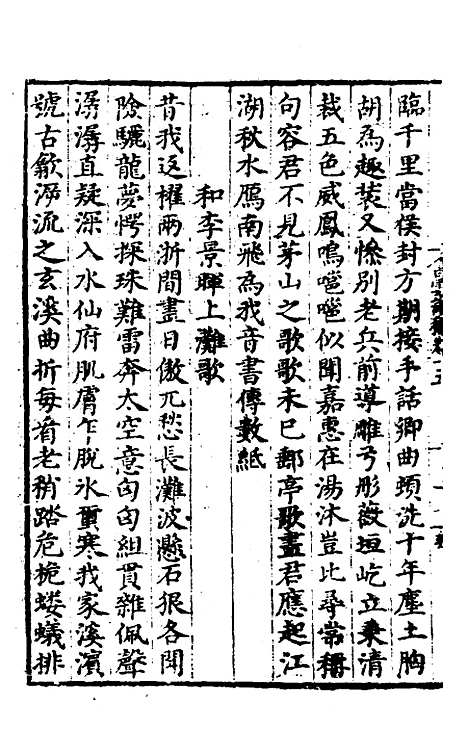 臨千里當侯封方期接手話卿曲頓洗十年塵土胸
胡為趣裝又慘別老兵前導雕弓彤薇垣屹立秉清
裁五色威鳳鳴噰噰似聞嘉惠在湯沐豈比尋常稱
句容君不見茅山之歌歌未已郵亭歌盡君應起江
湖秋水鴈南飛為我音書傳數紙
和李景暉上灘歌
昔我返櫂兩浙間晝日傲兀愁長灘波懸石狠各開
險驪龍夢愕探珠難雷奔太空意匈匈組貫雜佩聲
潺潺直疑深入水仙府肌膚乍脫氷霣寒我家溪濱
號古歙泝流之玄溪曲折每着老稍踏危桅螻蟻排